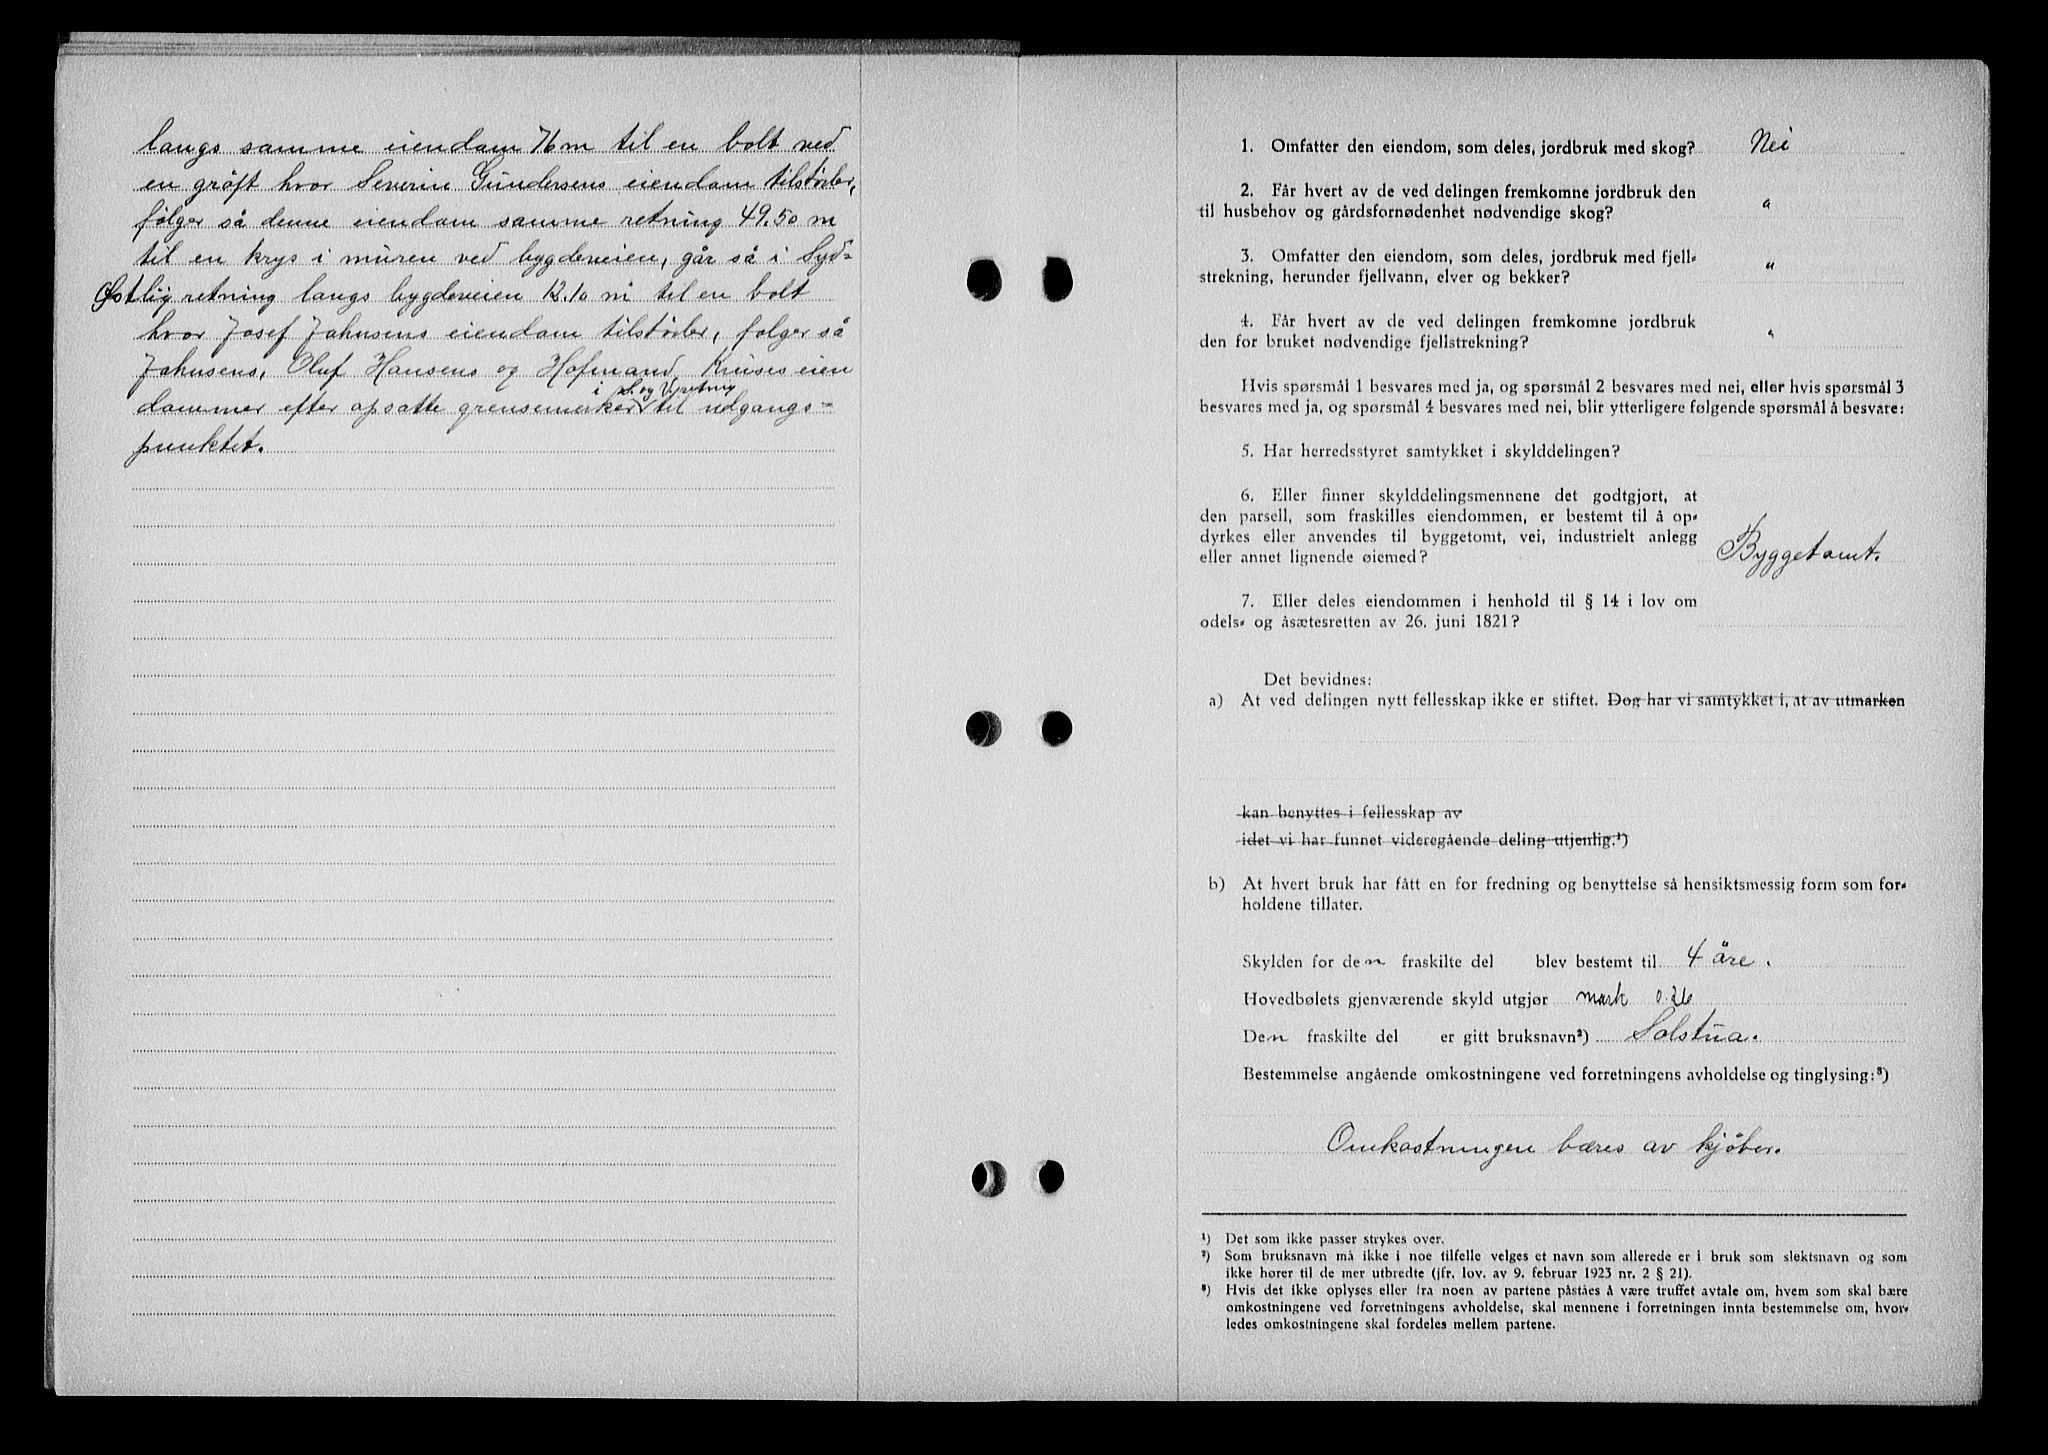 langs samme eiendam 76 m til en bolt ved
en grøft hvor Severin Gundersens eiendam tilstøder,
følger så denne eiendam samme retning 49.50 m
til en krys i muren ved bygdeveien, går så i Syd-
Østlig retning langs bygdeveien 12.10 m til en bolt
hvor Josef Jahnsens eiendam tilstøder, følger så
Jahnsens, Oluf Hansens og Hofmand Kruses eien
i S. og V. retning
dammer efter opsatte grensemerker til udgangs-
punktet.
1. Omfatter den eiendom, som deles, jordbruk med skog? Nei
2. Får hvert av de ved delingen fremkomne jordbruk den
til husbehov og gårdsfornødenhet nødvendige skog? "
3. Omfatter den eiendom, som deles, jordbruk med fjell-
strekning, herunder fjellvann, elver og bekker? "
4. Får hvert av de ved delingen fremkomne jordbruk
den for bruket nødvendige fjellstrekning? "
Hvis spørsmål 1 besvares med ja, og spørsmål 2 besvares med nei, eller hvis spørsmål 3
besvares med ja, og spørsmål 4 besvares med nei, blir ytterligere følgende spørsmål å besvare:
5. Har herredsstyret samtykket i skylddelingen?
6. Eller finner skylddelingsmennene det godtgjort, at
den parsell, som fraskilles eiendommen, er bestemt til å op-
dyrkes eller anvendes til byggetomt, vei, industrielt anlegg
eller annet lignende øiemed? Byggetomt.
7. Eller deles eiendommen i henhold til § 14 i lov om
odels- og åsætesretten av 26. juni 1821?
Det bevidnes:
a) At ved delingen nytt fellesskap ikke er stiftet. Dog har vi samtykket i, at av utmarken
kan benyttes i fellesskap av
idet vi har funnet videregående deling utjenlig.¹)
b) At hvert bruk har fått en for fredning og benyttelse så hensiktsmessig form som for-
holdene tillater.
Skylden for den fraskilte del blev bestemt til 4 øre.
Hovedbølets gjenværende skyld utgjør mark 0.26
Den fraskilte del er gitt bruksnavn²) Solstua.
Bestemmelse angående omkostningene ved forretningens avholdelse og tinglysing:³)
Omkostningen bæres av kjøber.
¹) Det som ikke passer strykes over.
²) Som bruksnavn må ikke i noe tilfelle velges et navn som allerede er i bruk som slektsnavn og som
ikke hører til de mer utbredte (jfr. lov. av 9. februar 1923 nr. 2 § 21).
³) Hvis det ikke oplyses eller fra noen av partene påståes å være truffet avtale om, hvem som skal bære
omkostningene ved forretningens avholdelse, skal mennene i forretningen innta bestemmelse om, hvor-
ledes omkostningene skal fordeles mellem partene.